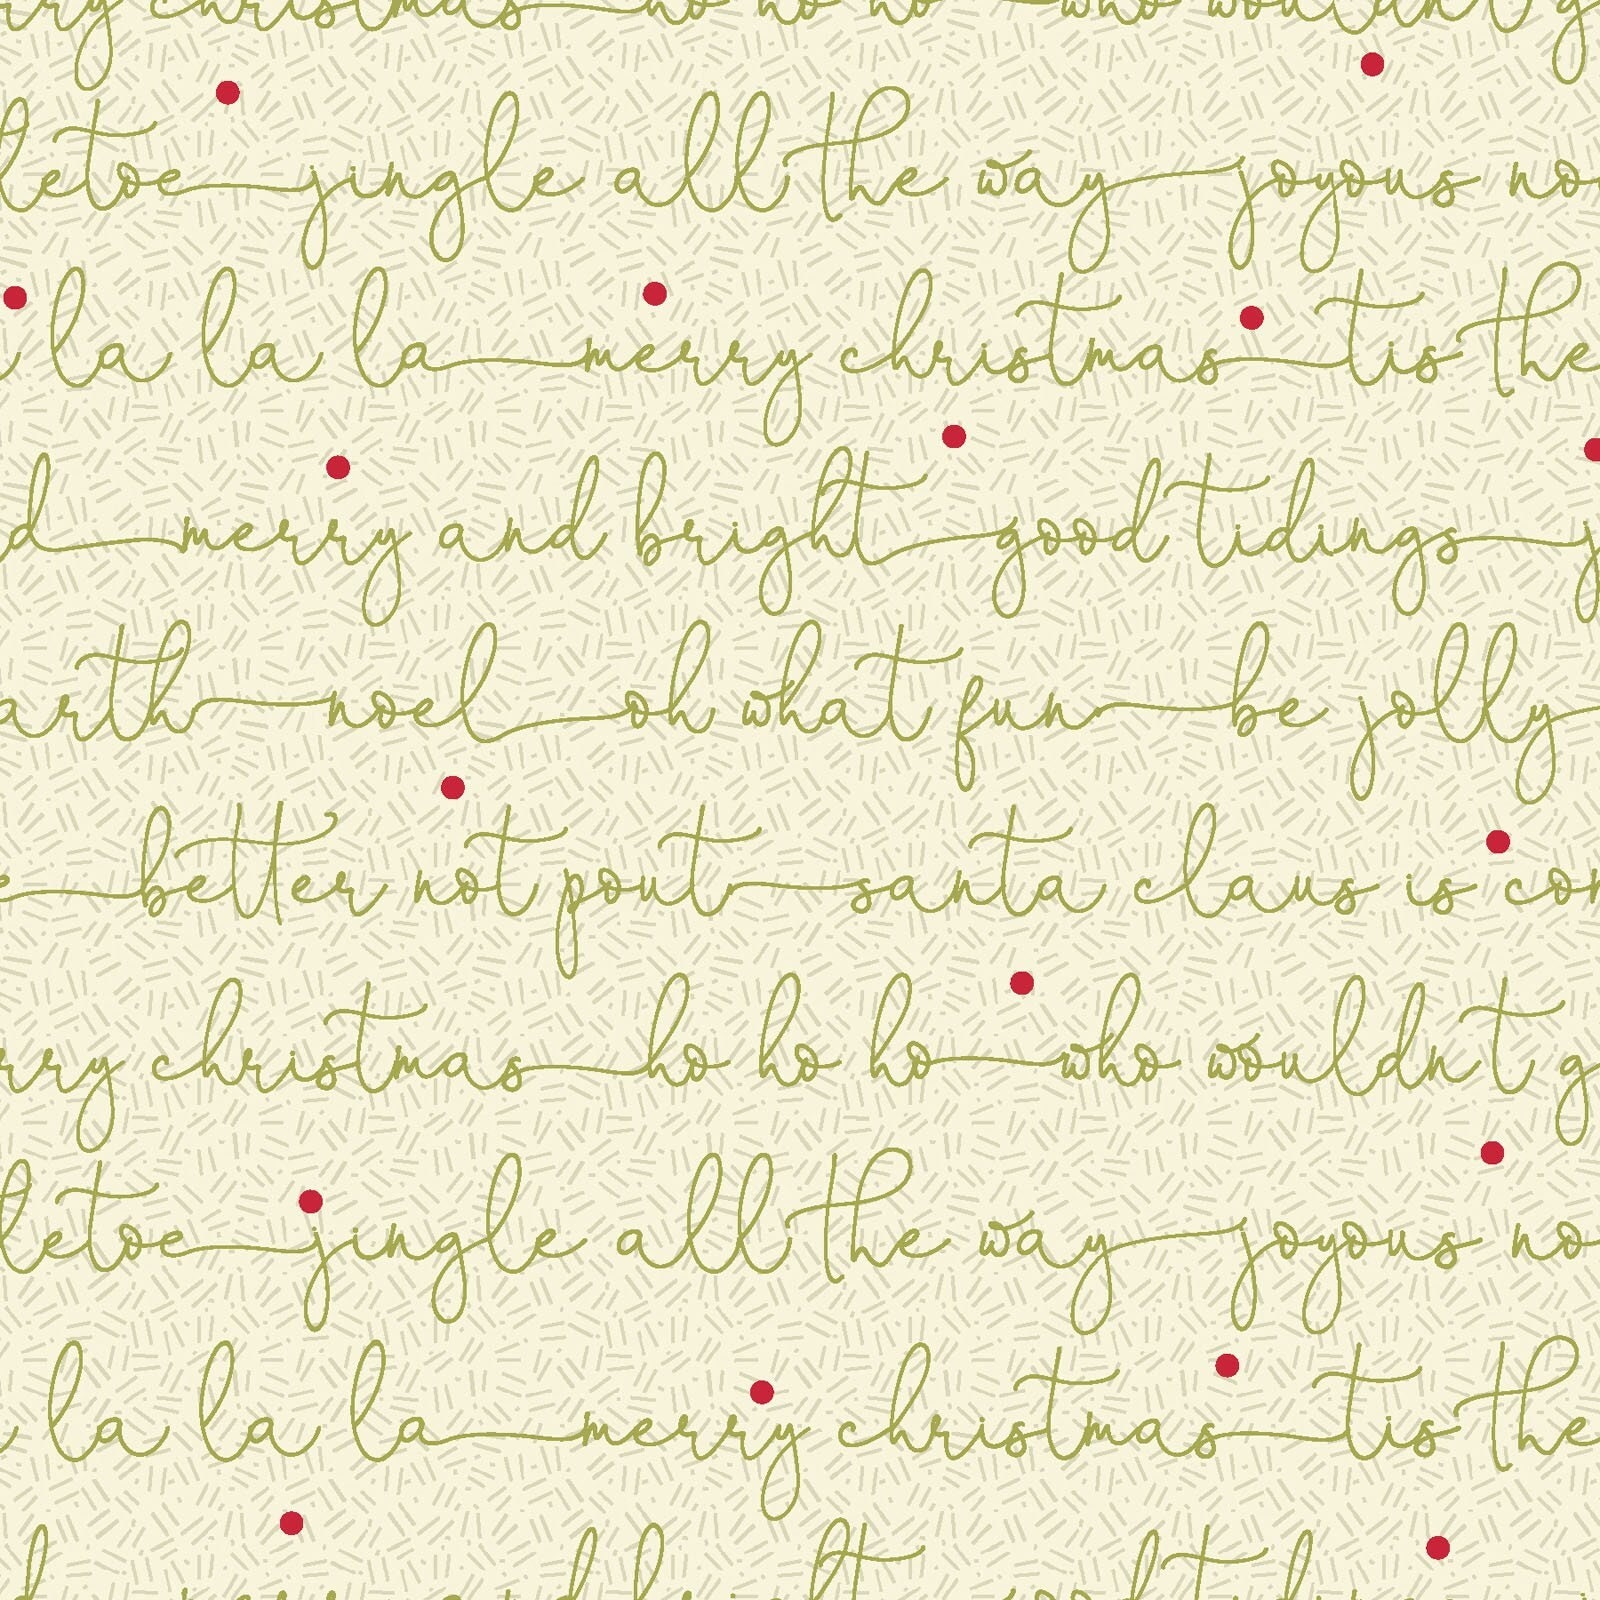 rry christmas ho ho ho who wouldnt g
letoe jingle all the way joyous no
la la la merry christmas tis the
d merry and bright good tidings j
arth noel oh what fun be jolly
e better not pout santa claus is co
rry christmas ho ho ho who wouldnt g
letoe jingle all the way joyous no
la la la merry christmas tis the
d merry and bright good tidings